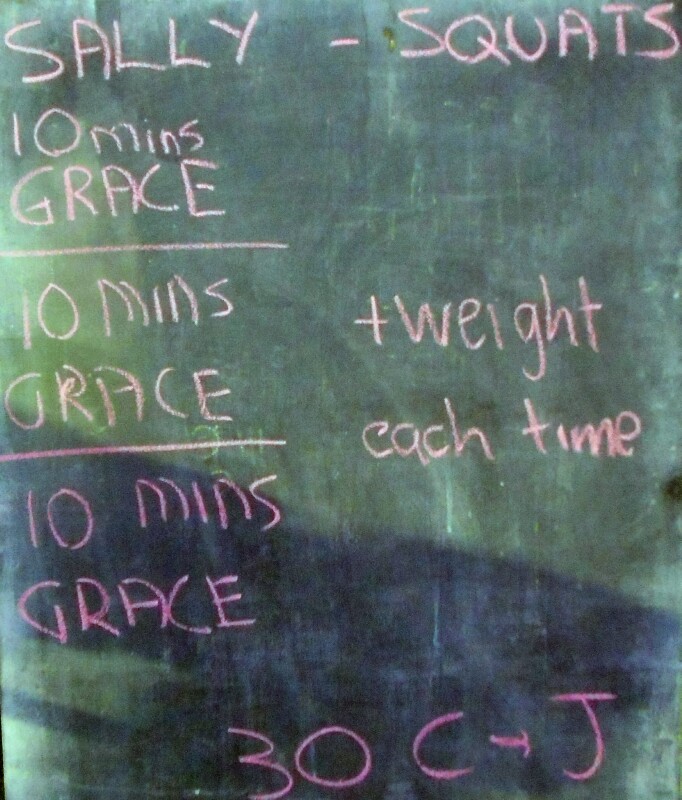 SALLY - SQUATS
10 mins
GRACE
10 MINS
GRACE
+weight
each time
10 MINS
GRACE
30 C→J